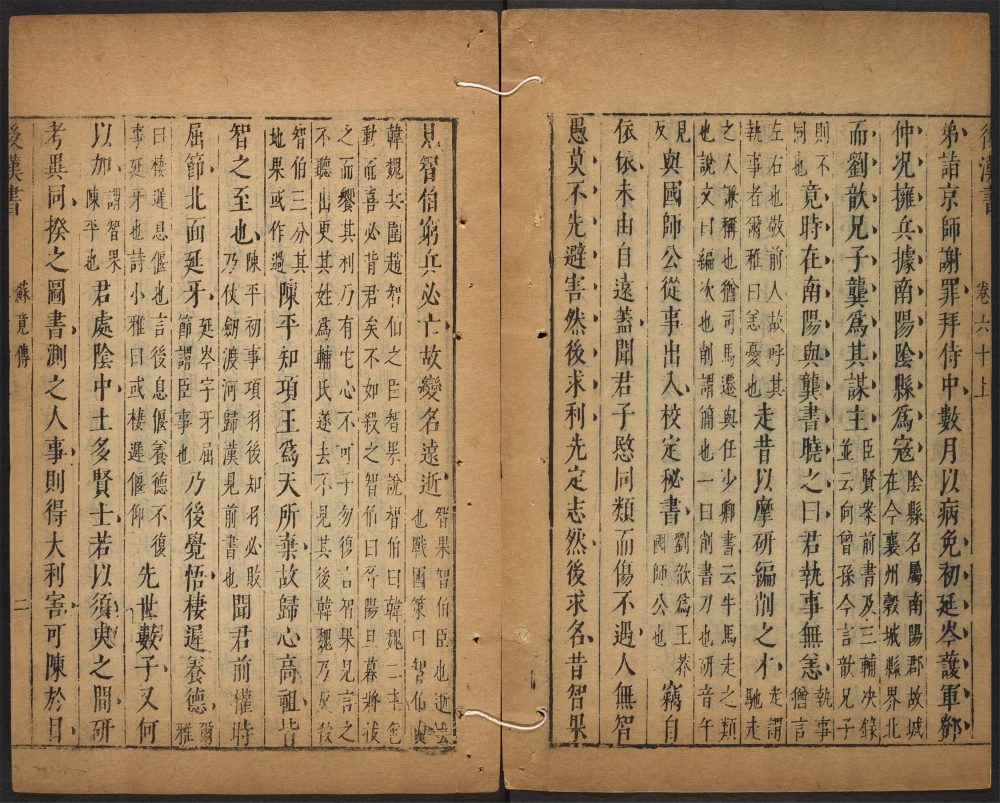 後漢書
卷六十上
弟詣京師謝罪拜侍中數月以病免初延岑護軍鄧
仲况擁兵據南陽陰縣爲寇陰縣名屬南陽郡故城在今襄州穀城縣界北
而劉歆兄子龔爲其謀主臣賢案前書及三輔决錄並云向曾孫今言歆兄子
則不同也竟時在南陽與龔書曉之曰君執事無恙執事猶言
左右也敬前人故呼其執事者爾雅曰恙憂也走昔以摩研編削之才走謂馳走
之人謙稱也猶司馬遷與任少卿書云牛馬走之類也說文曰編次也削謂簡也一曰削書刀也研音午
見反與國師公從事出入校定秘書劉歆爲王莽國師公也竊自
依依未由自遠蓋聞君子愍同類而傷不遇人無智
愚莫不先避害然後求利先定志然後求名昔智果
見智伯窮兵必亡故變名遠逝智果智伯臣也逝去也戰國策曰智伯與
韓魏共圍趙智伯之臣智果說智伯曰韓魏二主色動而喜必背君矣不如殺之智伯曰晉陽旦暮將拔
之而饗其利乃有它心不可子勿復言智果見言之不聽出更其姓爲輔氏遂去不見其後韓魏乃反殺
智伯三分其地果或作過陳平知項王爲天所棄故歸心高祖皆
智之至也陳平初事項羽後知羽必敗乃仗劒渡河歸漢見前書也聞君前權時
屈節北面延牙延岑字牙屈節謂臣事也乃後覺悟棲遲養德爾雅
曰棲遲息偃也言後息偃養德不復事延牙也詩小雅曰或棲遲偃仰先世數子又何
以加謂智果陳平也君處陰中土多賢士若以須臾之間研
考異同揆之圖書測之人事則得大利害可陳於目
後漢書
蘇竟傳
二